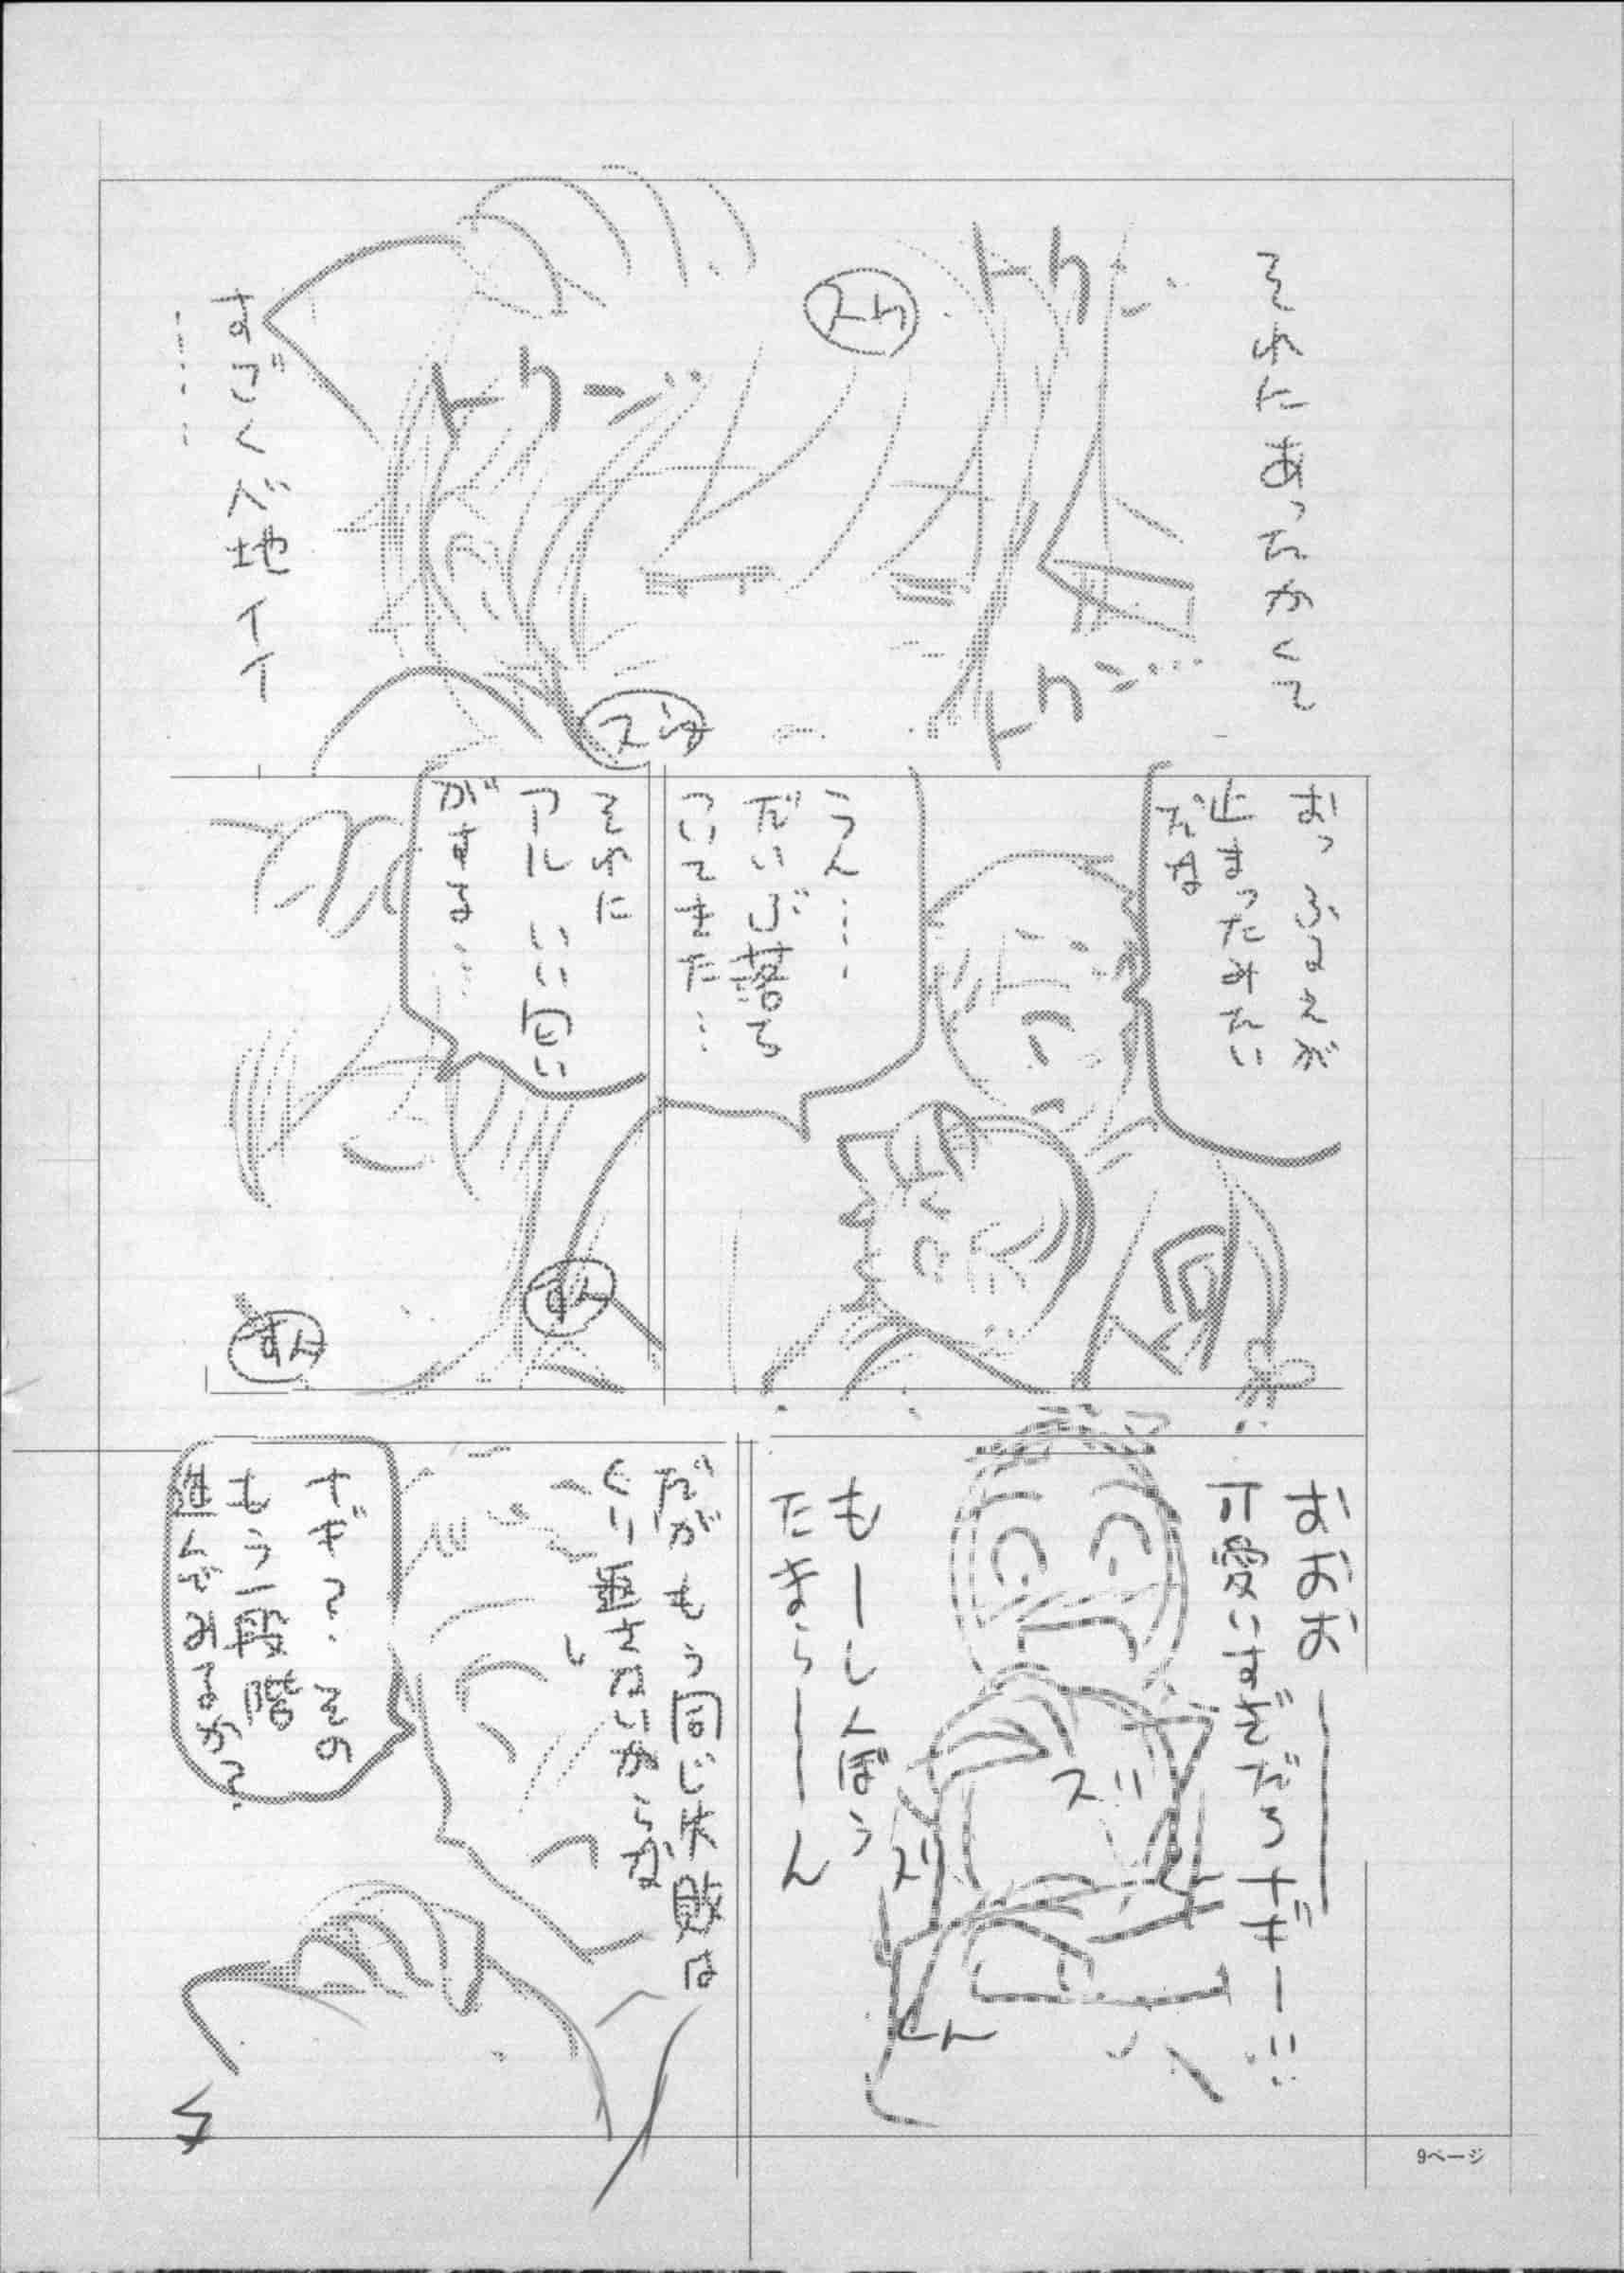 それにあったかくて
トクン…
スゥ
トクン…
トクン…
すごくベ地イイ
……
おっふるえが
止まったみたい
だな
うん……
だいぶ落ち
ついてきた…
それに
アル いい匂い
がする……
すん
すん
おおおーーー
可愛いすぎだろナギー!!
もーしんぼう
たまらーーん
スリ
スリ
くん
だがもう同じ失敗は
くり返さないからな
ナギ、その
もう一段階
進んでみるか?
9ページ